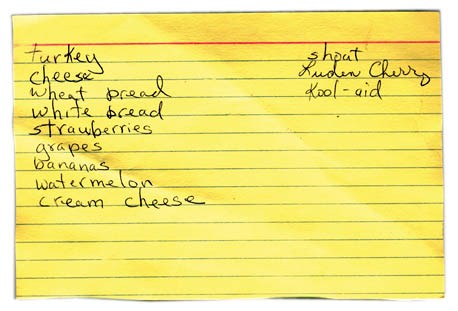 turkey
cheese
wheat bread
white bread
strawberries
grapes
bananas
watermelon
cream cheese
shout
Luden Cherry
Kool-aid